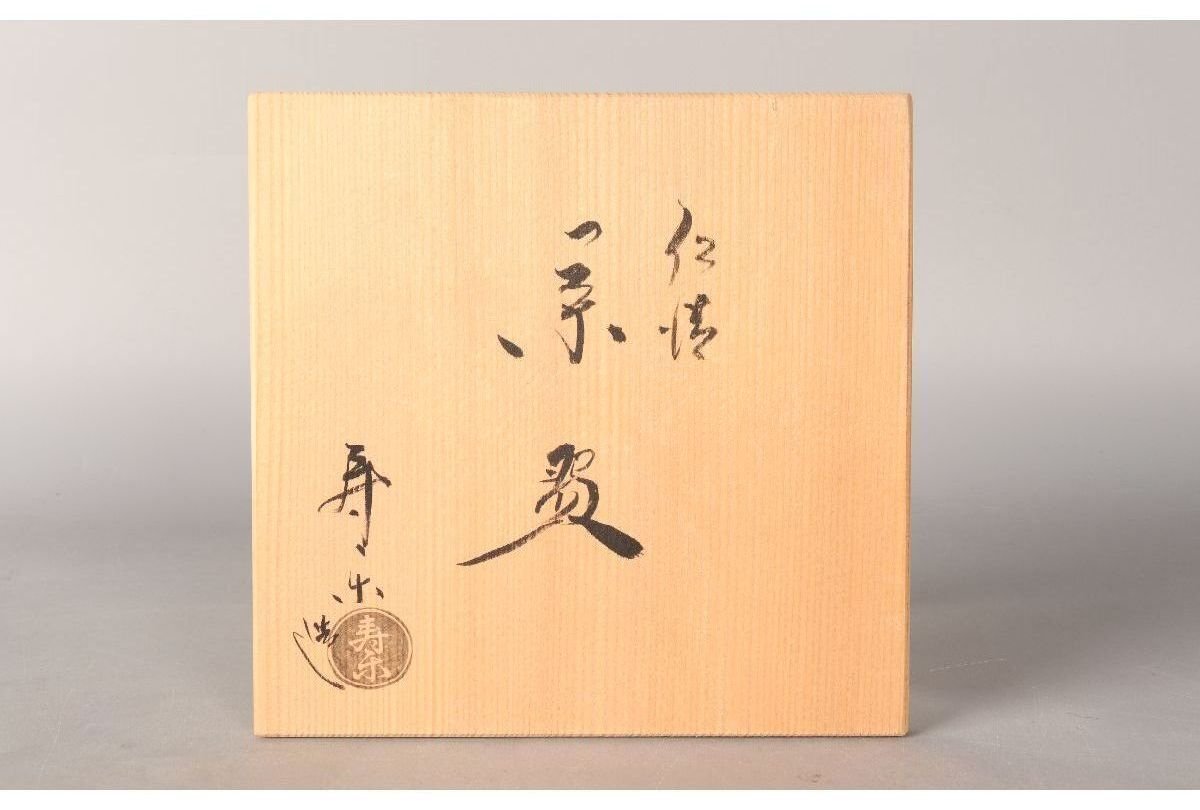 仁清
茶盌
寿楽造
寿楽